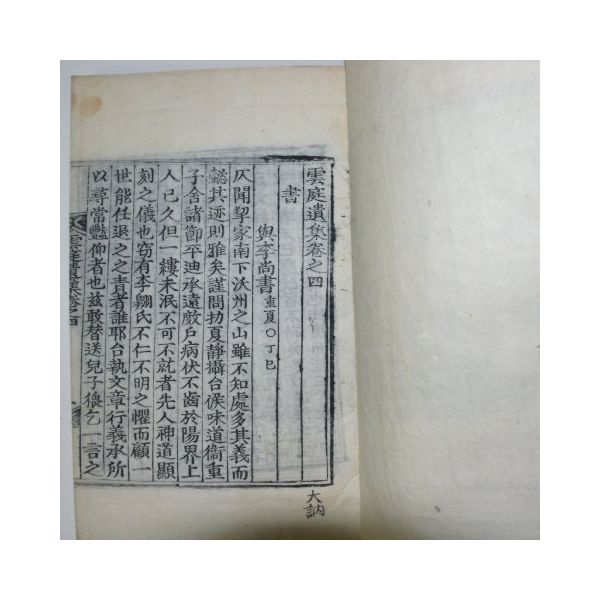 雲庭遺集卷之四
書
與李尚書重夏○丁巳
仄聞挈家南下沃州之山雖不知處多其義而
懿其迹則雅矣謹問劫夏靜攝台候味道衛重
子舍諸節平迪承遠廢戶病伏不齒於陽界上
人已久但一縷未泯不可不就者先人神道顯
刻之儀也窃有李翺氏不仁不明之懼而顧一
世能任退之之責者誰耶台執文章行義承所
以尋常艶仰者也玆敢替送兒子猿乞一言之
雲庭遺集卷之四
大訥